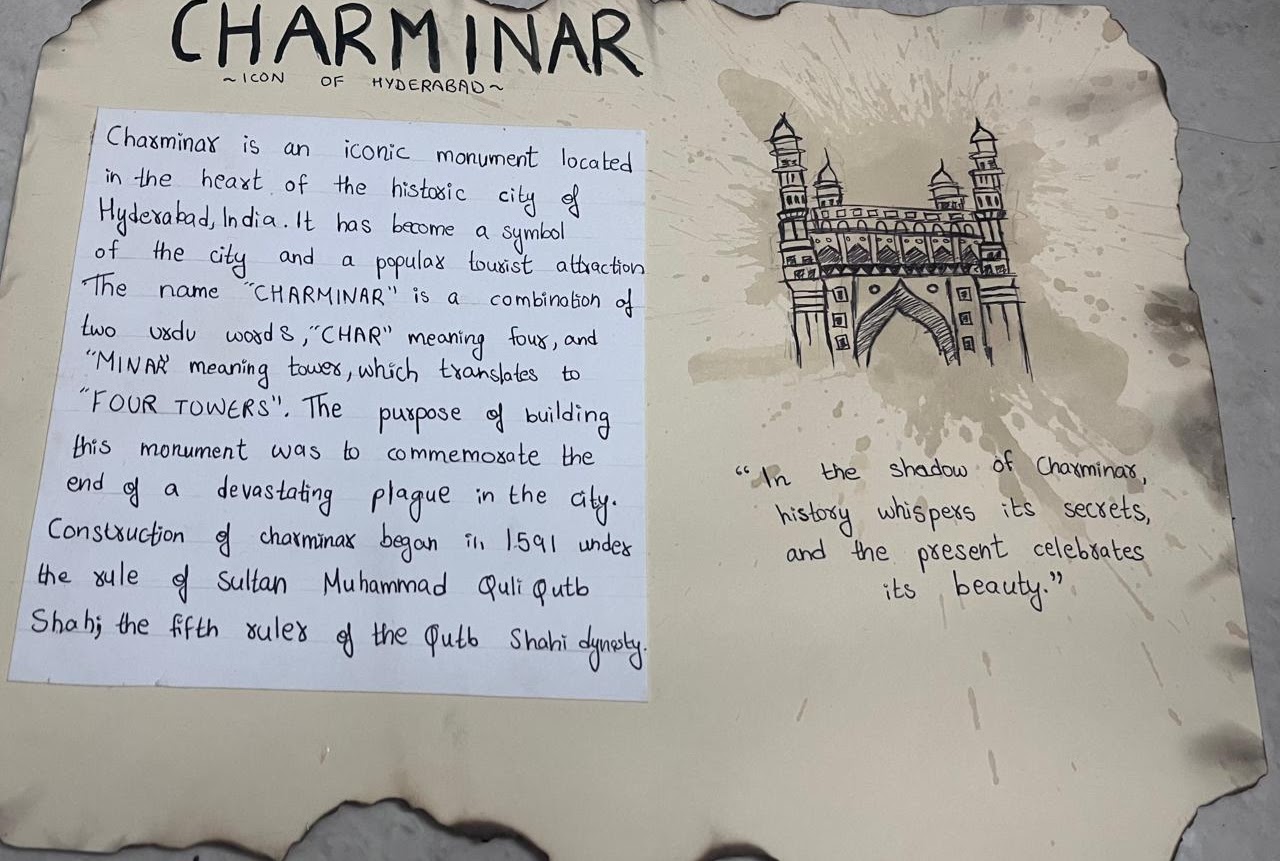 CHARMINAR
~ICON OF HYDERABAD~
Charminar is an iconic monument located
in the heart of the historic city of
Hyderabad, India. It has become a symbol
of the city and a popular tourist attraction
The name "CHARMINAR" is a combination of
two urdu words, "CHAR" meaning four, and
"MINAR" meaning tower, which translates to
"FOUR TOWERS". The purpose of building
this monument was to commemorate the
end of a devastating plague in the city.
Construction of charminar began in 1591 under
the rule of Sultan Muhammad Quli Qutb
Shah, the fifth ruler of the Qutb Shahi dynesty.
"In the shadow of Charminar,
history whispers its secrets,
and the present celebrates
its beauty."